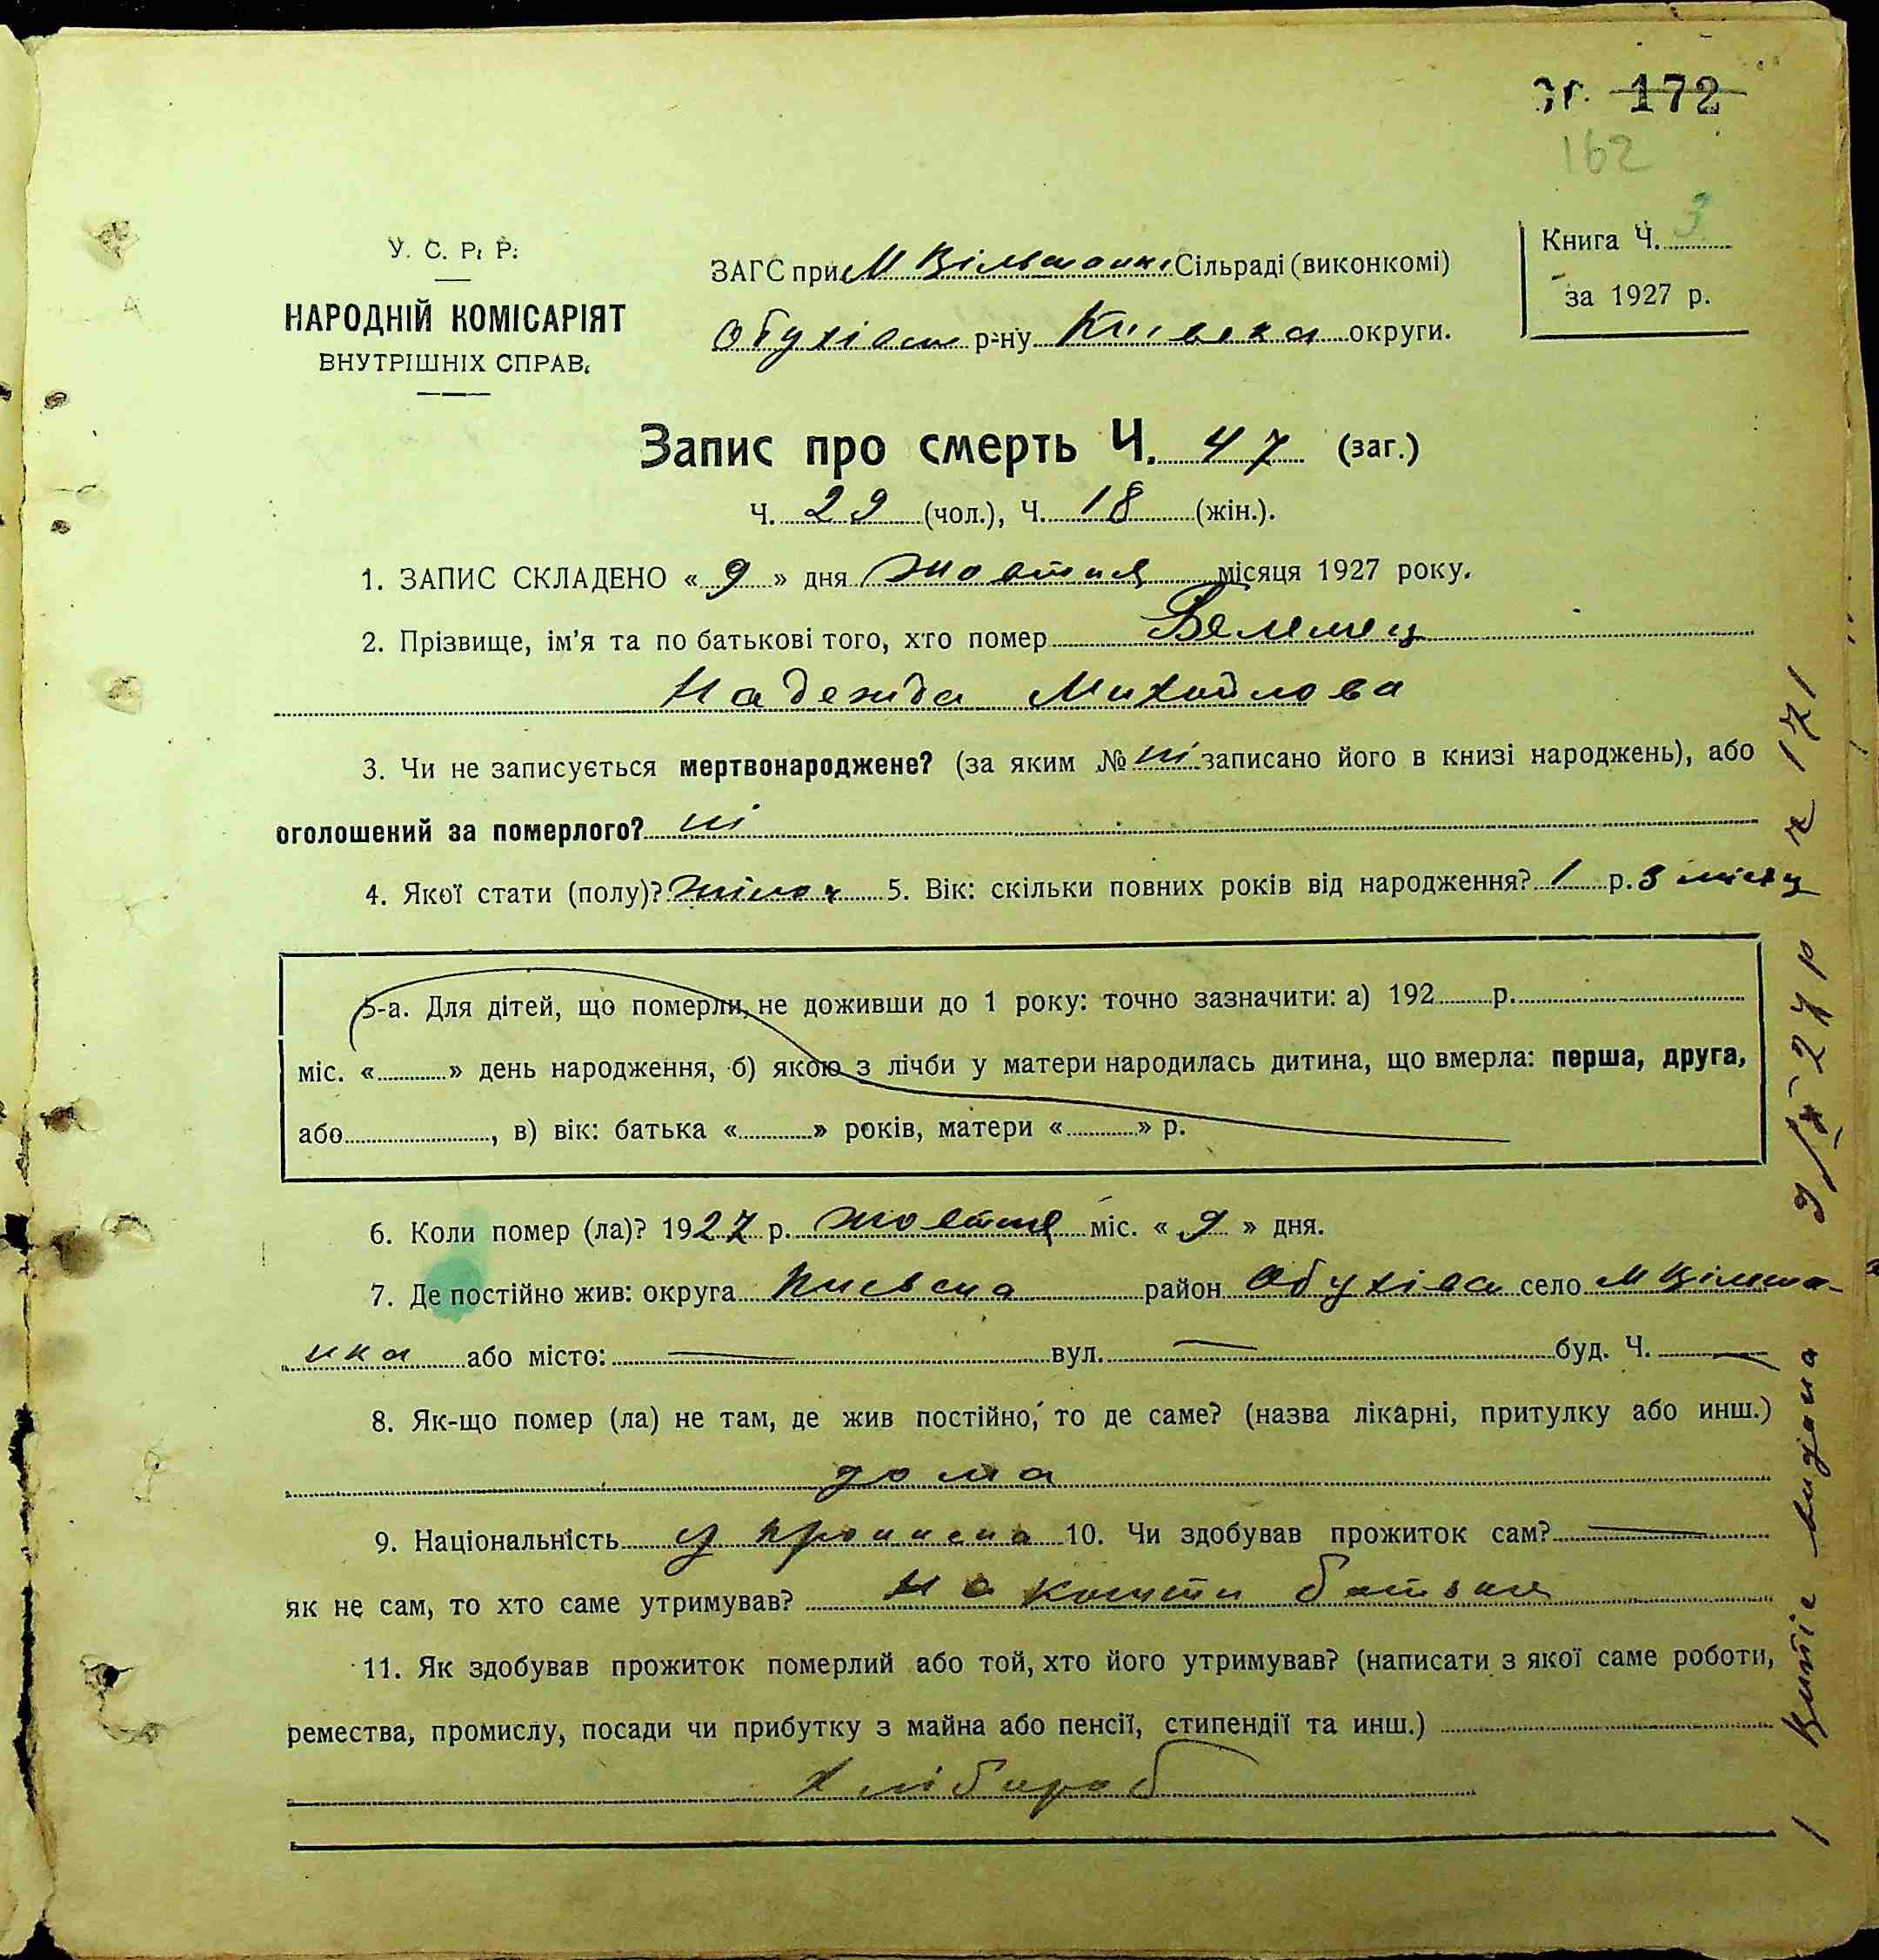 172
162
У. С. Р. Р.
НАРОДНІЙ КОМІСАРІЯТ
ВНУТРІШНІХ СПРАВ.
ЗАГС при М Вільшанк. Сільраді (виконкомі)
Обухівськ р-ну Київска округи.
Книга Ч. 3
за 1927 р.
Запис про смерть Ч. 47 (заг.)
Ч. 29 (чол.), Ч. 18 (жін.).
1. ЗАПИС СКЛАДЕНО « 9 » дня жовтня місяця 1927 року.
2. Прізвище, ім'я та по батькові того, хто помер
Надежда Михайлова
3. Чи не записується мертвонароджене? (за яким № ні записано його в книзі народжень), або
оголошений за померлого? ні
4. Якої стати (полу)? жіноч 5. Вік: скільки повних років від народження? 1 р. 3 місяц
5-а. Для дітей, що померли, не доживши до 1 року: точно зазначити: а) 192 р.
міс. « » день народження, б) якою з лічби у матери народилась дитина, що вмерла: перша, друга,
або , в) вік: батька « » років, матери « » р.
6. Коли помер (ла)? 1927 р. жовтня міс. « 9 » дня.
7. Де постійно жив: округа Киевска район Обухівск село М Вільша-
нка або місто: — вул. — буд. Ч. —
8. Як-що помер (ла) не там, де жив постійно, то де саме? (назва лікарні, притулку або инш.)
дома
9. Національність украинска 10. Чи здобував прожиток сам? —
як не сам, то хто саме утримував? на кошти батька
11. Як здобував прожиток померлий або той, хто його утримував? (написати з якої саме роботи,
ремества, промислу, посади чи прибутку з майна або пенсії, стипендії та инш.)
хлібороб
видана 9/X 27 р 171